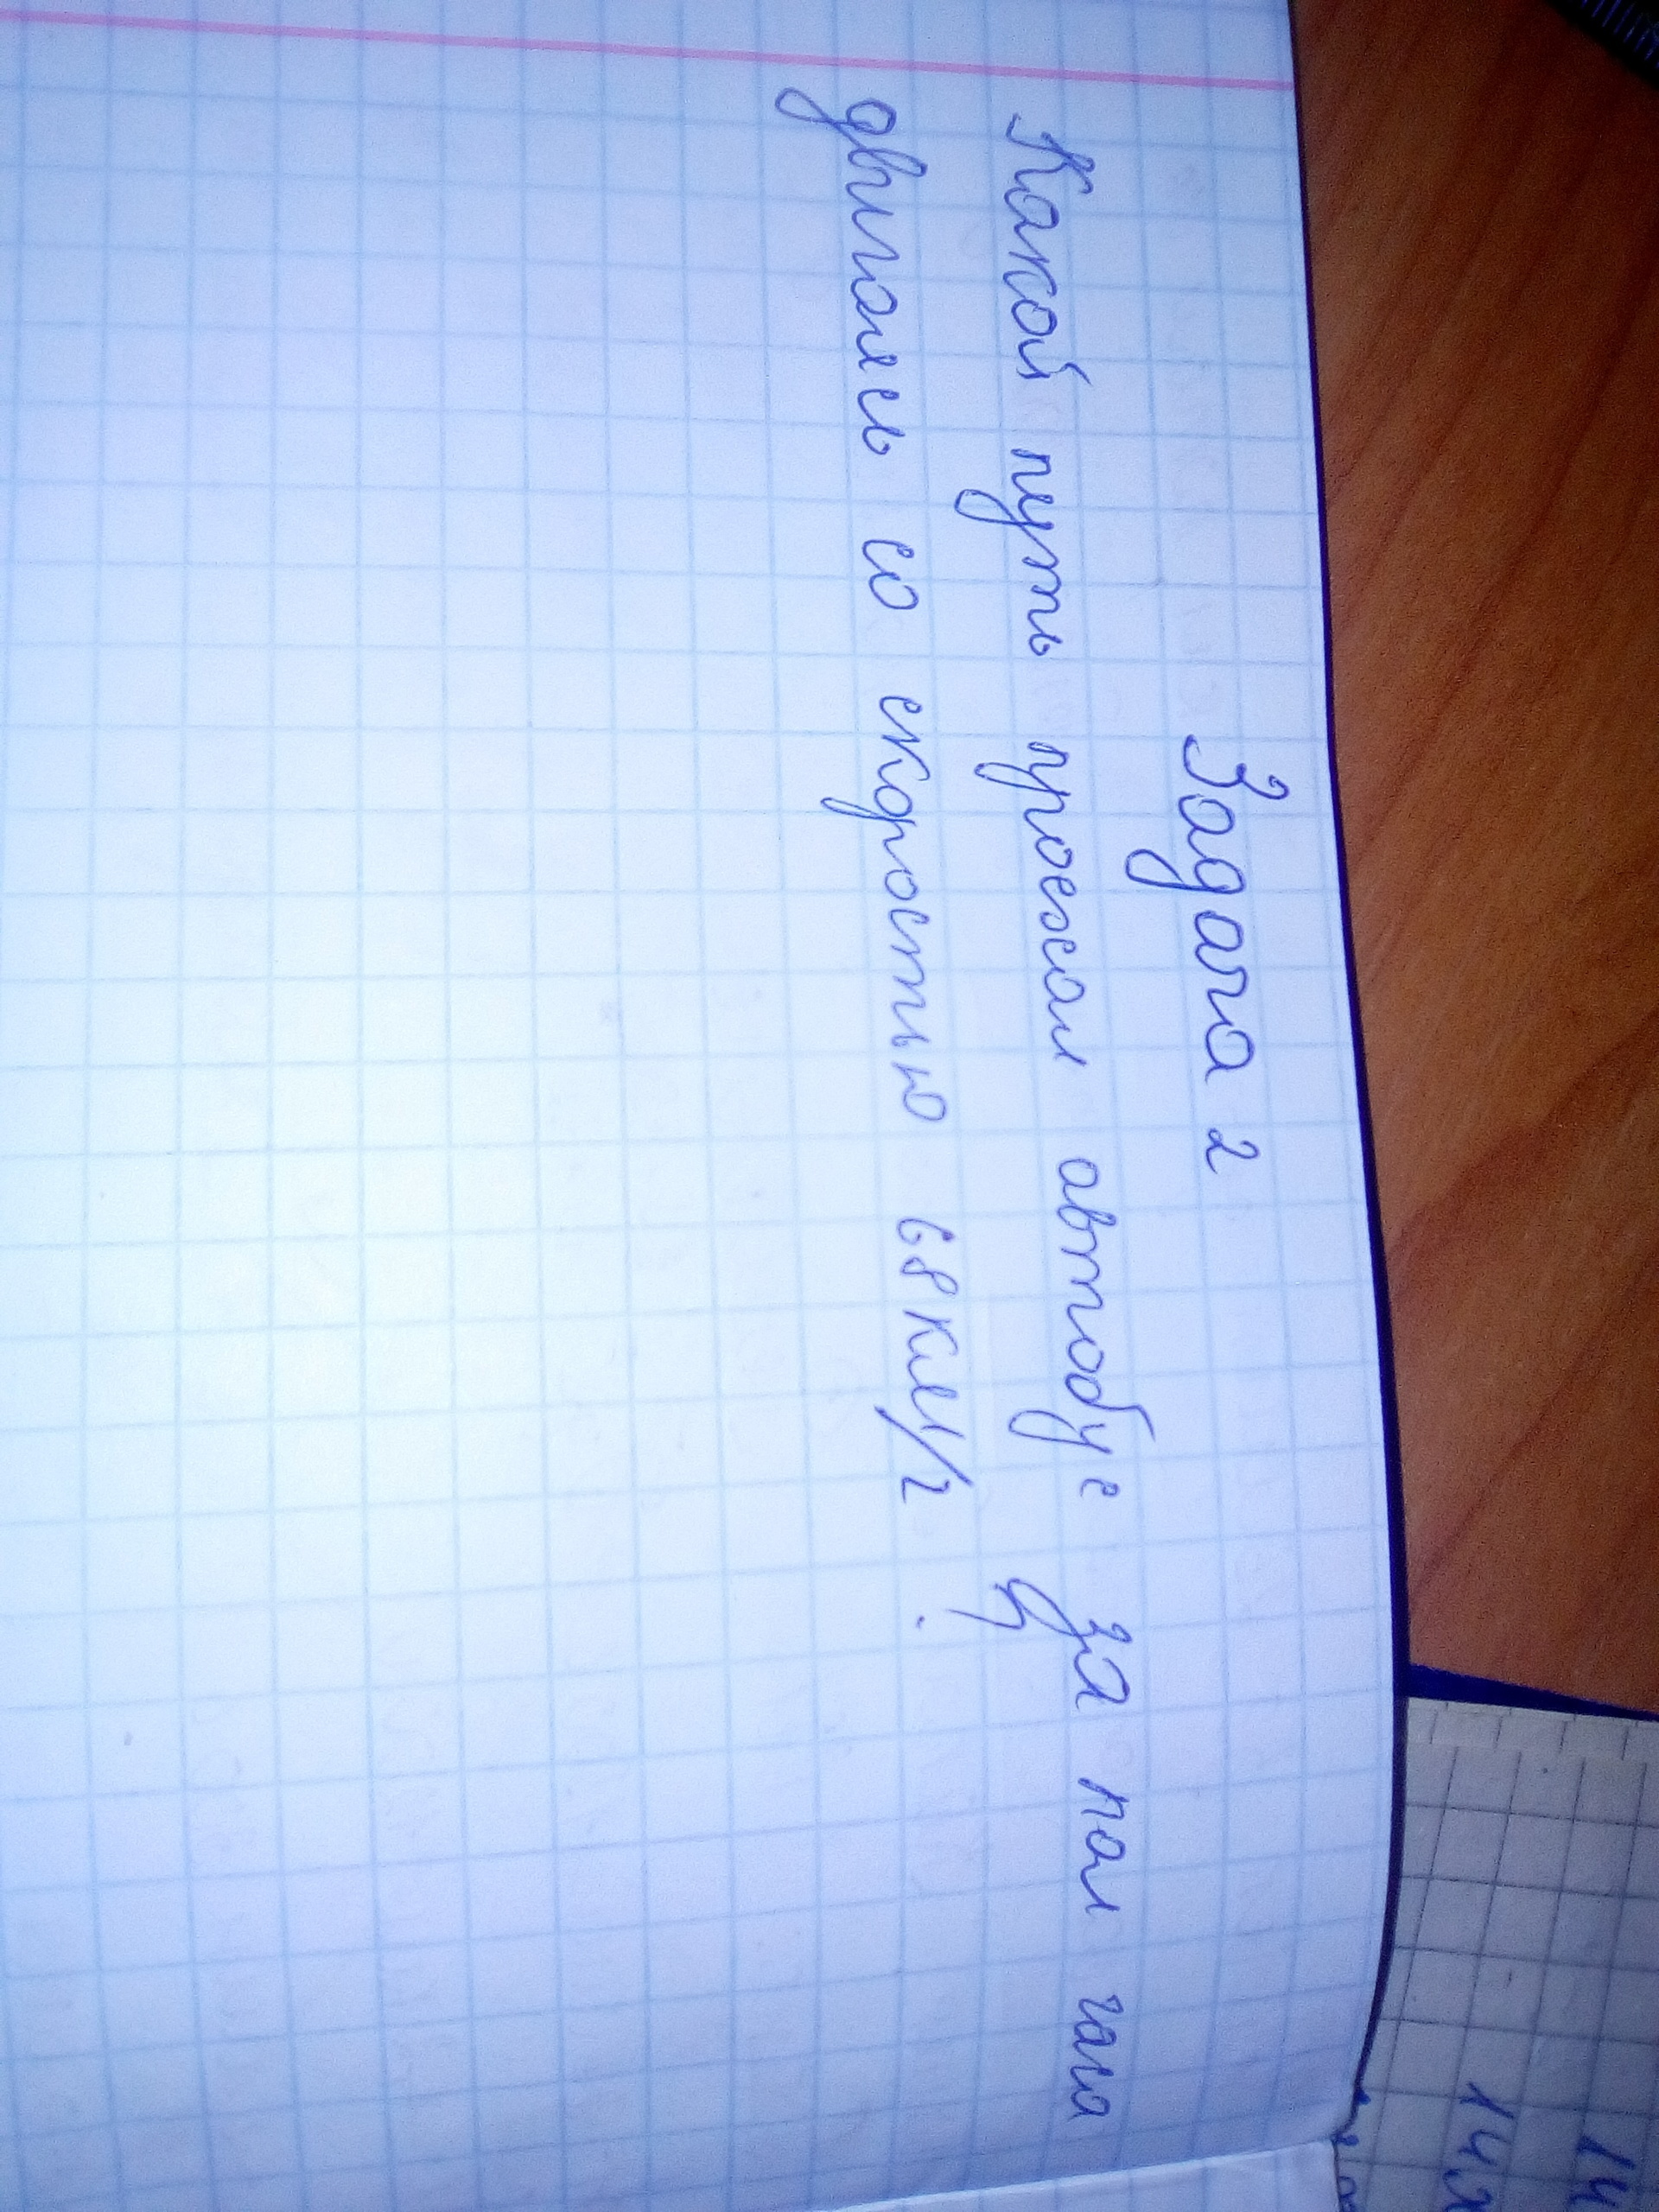 Задача 2
Какой путь проехал автобус за пол часа
двигаясь со скоростью 68 км/ч
14
14х